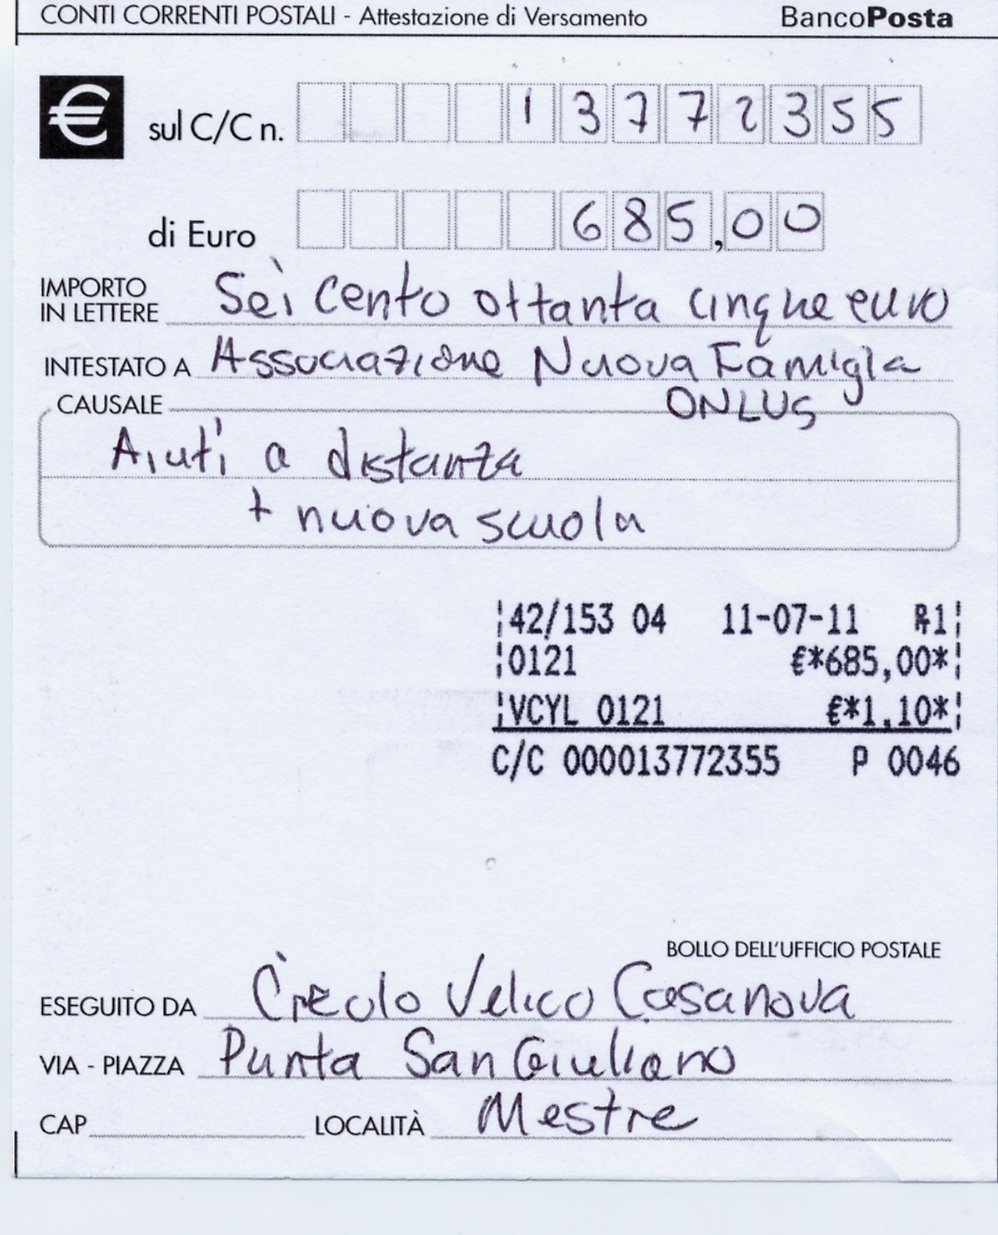 CONTI CORRENTI POSTALI - Attestazione di Versamento BancoPosta
€ sul C/C n. 13772355
di Euro 685,00
IMPORTO IN LETTERE Sei cento ottanta cinque euro
INTESTATO A Associazione Nuova Famigla
ONLUS
CAUSALE
Aiuti a distanza
+ nuova scuola
42/153 04 11-07-11 R1
0121 €*685,00*
VCYL 0121 €*1,10*
C/C 000013772355 P 0046
BOLLO DELL'UFFICIO POSTALE
ESEGUITO DA Circolo Velico Casanova
VIA - PIAZZA Punta San Giuliano
CAP LOCALITÀ Mestre